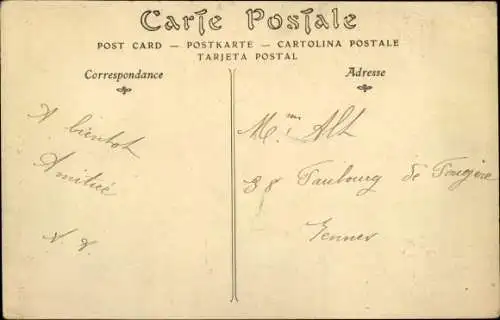 Carte Postale
POST CARD — POSTKARTE — CARTOLINA POSTALE
TARJETA POSTAL
Correspondance
Adresse
A bientot
Amitié
Mme Alt
38 Faubourg de Fougère